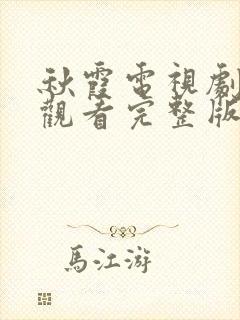 秋霞電視劇
觀看完整版
馬江游